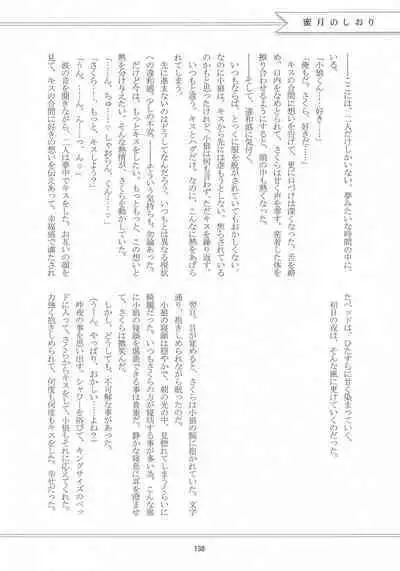 蜜月のしおり
――ここには、二人だけしかいない。夢みたいな時間の中に
いる。
「小狼くん、好き……」
「俺もだ。さくら、好きだ……」
キスの合間に想いを告げて、更に口づけは深くなった。舌を絡
め、口内をなめとられて、さくらは甘く声を零す。密着した体を
擦り合わせるようにすると、頭の中も熱くなった。
――そして、違和感に気付く。
いつもならば、とっくに服を脱がされていてもおかしくない。
なのに小狼は、キスから先には進もうとしない。焦らされている
のかもと思ったけれど、小狼は何も言わず、ただキスを繰り返す。
いつもと違う。キスとハグだけ。なのに、こんなに熱をあげら
れてしまう。
先に進まないのはどうしてなんだろう？ いつもとは異なる現状
への違和感、少しの不安。――そういう気持ちも、勿論あった。
だけど今は、もっとキスをしたい。もっともっと、この想いと
熱を分け与えたい。そんな熱情が、さくらを動かしていた。
「……ちゅ……っ、しゃおらん、くん……」
「さくら……もっと、キスしよう？」
「うん、……ん、ん……っ」
波の音を聞きながら、二人は夢中でキスをした。お互いの顔を
見て、キスの合間に好きの想いを伝えあって、幸福感で満たされ
た。ベッドは、ひたすらに甘く染まっていく。
初日の夜は、そんな風に更けていくのだった。
翌日。目が覚めると、さくらは小狼の腕に抱かれていた。文字
通り、抱きしめられながら眠ったのだ。
小狼の寝顔は穏やかで、朝の光の中、見惚れてしまうくらいに
綺麗だった。いつもさくらの方が寝坊する事が多い為、こんな風
に小狼の寝顔を堪能できる事は貴重だ。静かな寝息に耳を澄ませ
て、さくらは微笑んだ。
しかし、どうしても、不可解な事があった。
（うーん。やっぱり、おかしい……よね？）
昨夜の事を思い出す。シャワーを浴びて、キングサイズのベッ
ドに入って、さくらからキスをして、小狼もそれに応えてくれた。
力強く抱きしめられて、何度も何度もキスをした。幸せだった。
138